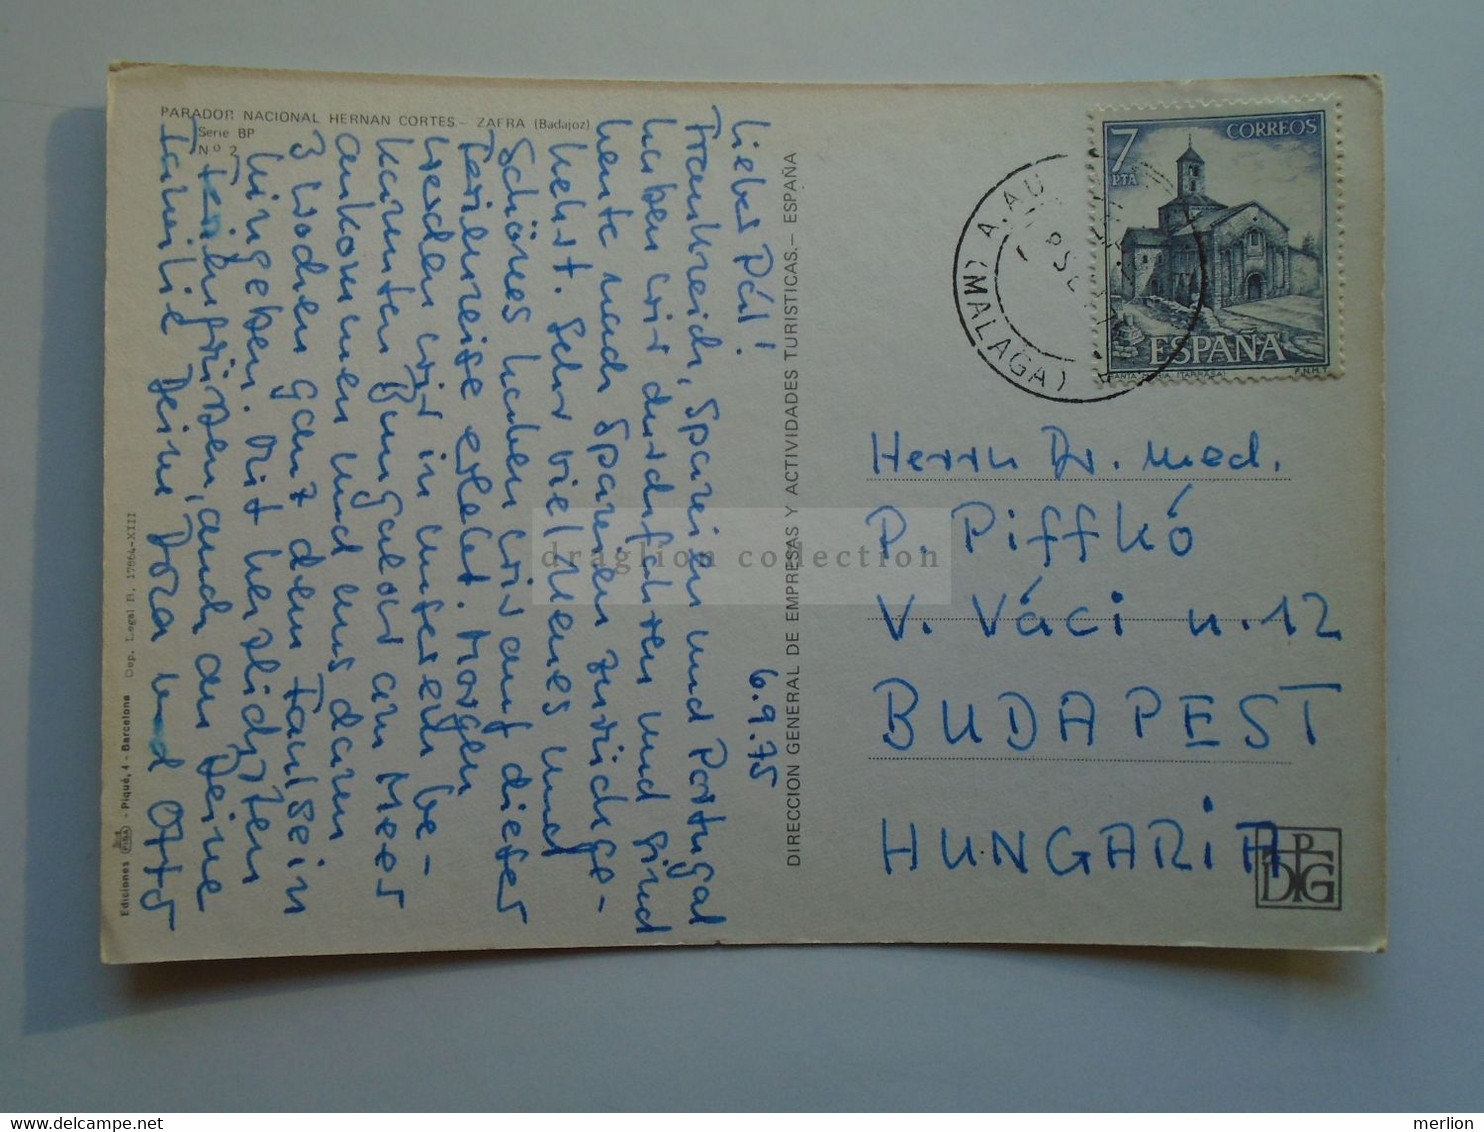 PARADOR NACIONAL HERNAN CORTES.- ZAFRA (Badajoz)
Serie BP
Nº 2
6.9.75
Lieber Pál!
Frankreich, Spanien und Portugal
haben wir durchfahren und sind
heute nach Spanien zurückge-
kehrt. Sehr viel Neues und
Schönes haben wir auf dieser
Ferienreise erlebt. Morgen
werden wir in unserem be-
kannten Bungalow am Meer
ankommen und uns dann
3 Wochen ganz dem Faulsein
hingeben. Mit herzlichsten
Feriengrüssen, auch an Deine
Familie Deine Dora und Otto
Ediciones FISA - Piqué, 4 - Barcelona Dep. Legal B. 17864-XIII
DIRECCION GENERAL DE EMPRESAS Y ACTIVIDADES TURISTICAS.- ESPAÑA
7 PTA
CORREOS
ESPAÑA
(TARRASA)
F.N.M.T.
A. AU
(MALAGA)
Herrn Dr. med.
P. Piffkó
V. Váci u. 12
BUDAPEST
HUNGARIA
DPG
draglion collection
www.delcampe.net
merlion